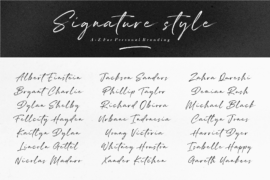 Signature style
A-Z For Personal Branding
Albert Einstein
Bryant Charlie
Dylan Shelby
Felicity Hayden
Kaitlyn Dylan
Lincoln Gattel
Nicolas Maduro
Jackson Sanders
Phillip Taylor
Richard Obiora
Urbane Indonesia
Young Victoria
Whitney Houston
Xander Kitchen
Zahra Qureshi
Denian Rush
Michael Black
Caitlyn Jones
Harriet Dyer
Isabelle Happy
Gareth